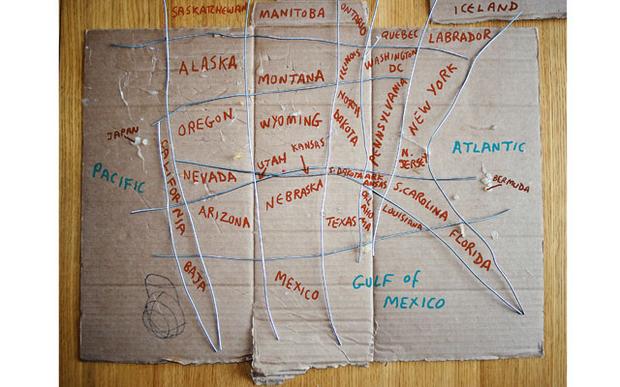 SASKATCHEWAN
MANITOBA
ONTARIO
ICELAND
QUEBEC
LABRADOR
ALASKA
MONTANA
ILLINOIS
WASHINGTON
DC
NEW YORK
OREGON
WYOMING
NORTH
DAKOTA
PENNSYLVANIA
JAPAN
CALIFORNIA
UTAH
KANSAS
N.
JERSEY
ATLANTIC
PACIFIC
NEVADA
NEBRASKA
S. DAKOTA
ARK
ANSAS
S. CAROLINA
BERMUDA
ARIZONA
TEXAS
OKLAHOMA
LOUISIANA
FLORIDA
BAJA
MEXICO
GULF OF
MEXICO